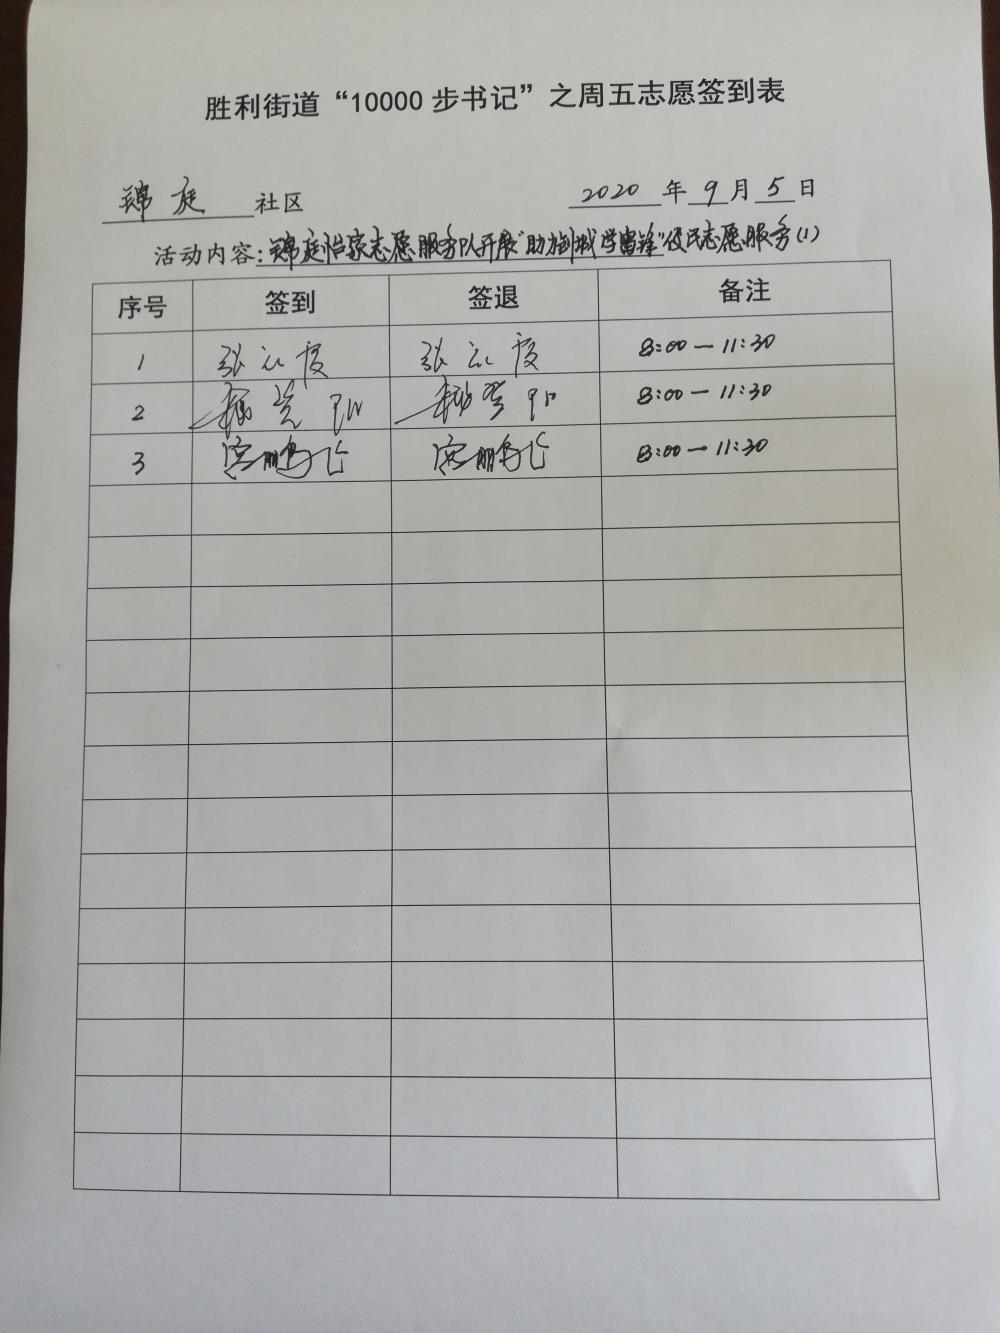 胜利街道“10000步书记”之周五志愿签到表
锦庭社区 2020年9月5日
活动内容:锦庭怡家志愿服务队开展“助力创城 学雷锋”便民志愿服务(1)
序号 签到 签退 备注
1 张 霞 张 霞 8:00—11:30
2 8:00—11:30
3 鹏飞 鹏飞 8:00—11:30